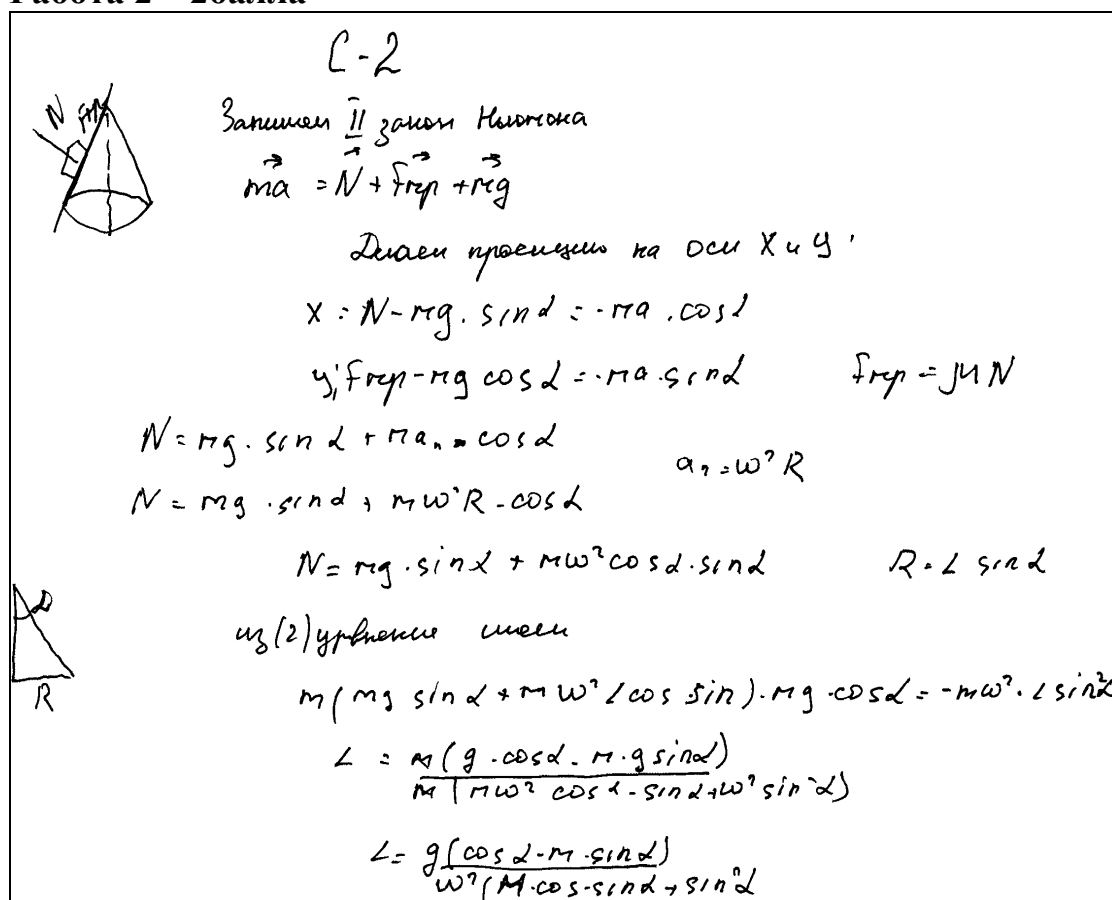 С-2
N Fтр
Запишем II закон Ньютона
ma = N + Fтр + mg
Делаем проекцию на оси X и У
X: N - mg · sin α = - ma · cos α
y: Fтр - mg cos α = - ma · sin α Fтр = μN
N = mg · sin α + ma n · cos α
a n = ω² R
N = mg · sin α + mω²R · cos α
N = mg · sin α + mω² cos α · sin α R = L sin α
из (2) урвнение имеем
α
R
m(mg sin α + mω² L cos sin) · mg · cos α = -mω² · L sin² α
L = m(g · cos α - м · g sin α) / m(мω² cos α · sin α + ω² sin² α)
L = g(cos α - м · sin α) / ω²(м · cos · sin α + sin² α